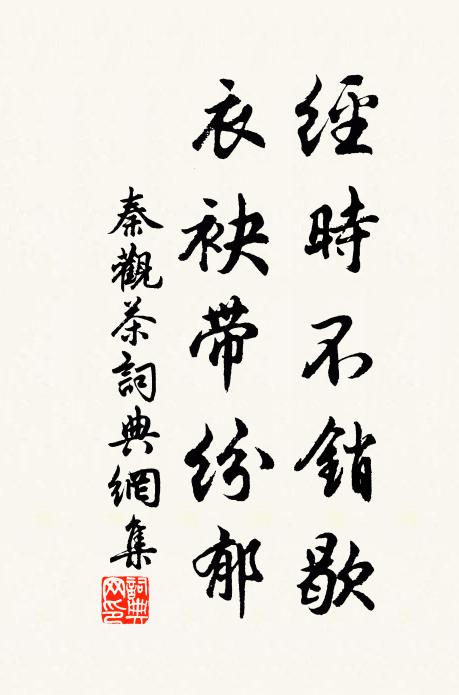 經時不銷歇
衣袂帶紛郁
秦觀茶詞典網集
詞典網印